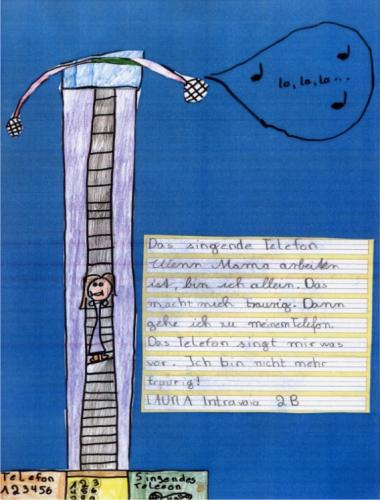 la, la, la...
Das singende Telefon
Wenn Mama arbeiten
ist, bin ich allein. Das
macht mich traurig. Dann
gehe ich zu meinem Telefon.
Das Telefon singt mir was
vor. Ich bin nicht mehr
traurig!
LAURA Intravaia 2B
Telefon
123456
123
456
Singendes
Telefon